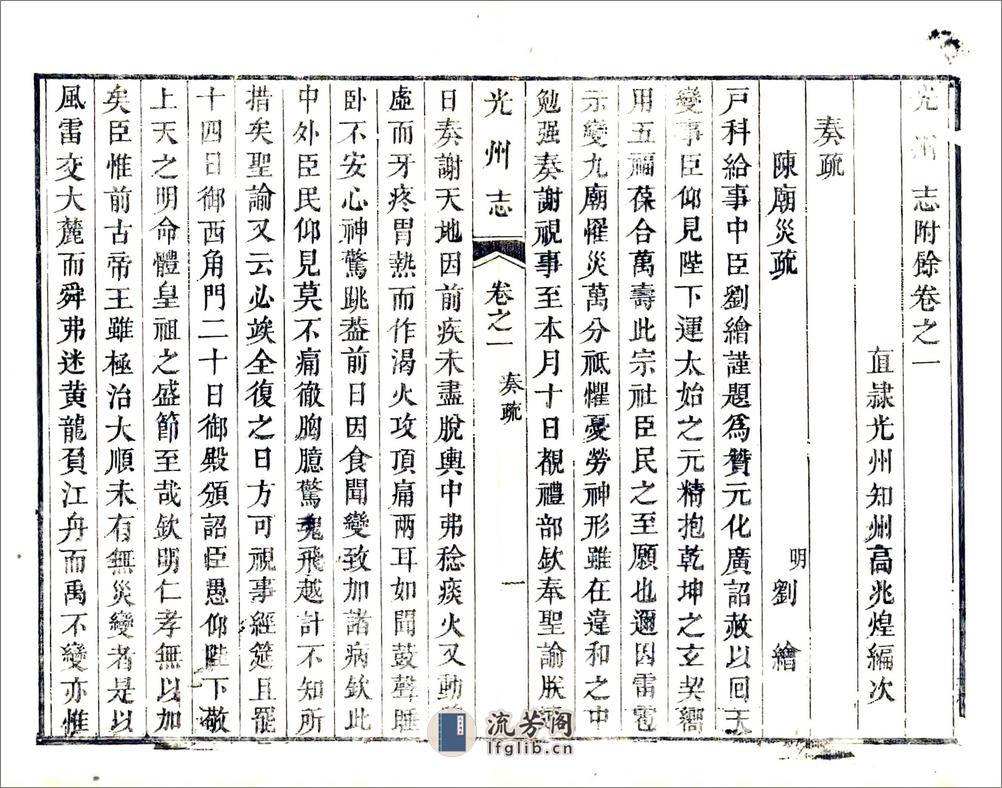 光州志附餘卷之一
直隸光州知州高兆煌編次
奏疏
陳廟災疏
明 劉繪
戸科給事中臣劉繪謹題爲贊元化廣詔赦以囘天
變事臣仰見陛下運太始之元精抱乾坤之玄契嚮
用五福葆合萬壽此宗社臣民之至願也邇因雷電
示變九廟罹災萬分祇懼憂勞神形雖在違和之中
勉强奏謝視事至本月十日覩禮部欽奉聖諭朕
光州志 卷之一 奏疏 一
日奏謝天地因前疾未盡脫輿中弗稔痰火又動
虛而牙疼胃熱而作渴火攻頂痛兩耳如聞鼓聲睡
卧不安心神驚跳葢前日因食聞變致加諸病欽此
中外臣民仰見莫不痛徹胸臆驚魂飛越計不知所
措矣聖諭又云必竢全復之日方可視事經筵且罷
十四日御西角門二十日御殿頒詔臣愚仰陛下敬
上天之明命體皇祖之盛節至哉欽明仁孝無以加
矣臣惟前古帝王雖極治大順未有無災變者是以
風雷交大麓而舜弗迷黃龍負江舟而禹不變亦惟
流芳阁
lfglib.cn